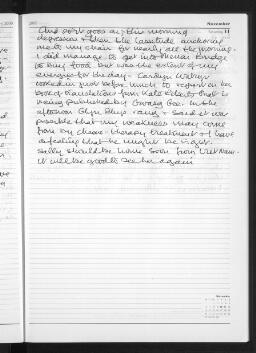 November
11
And so it goes on, this morning
depression & then the lassitude anchored
me to my chair for nearly all the morning.
I did manage to get into Menai Bridge
to buy food but was the extent of my
energy for the day - Carolyn
looked in just before lunch to report on her
book of translations from Kate Roberts that is
being published by Gwasg Gee. In the
afternoon Glyn Rhys rang & said it was
possible that my weakness may come
from my chemo-therapy treatment & I have
a feeling that he might be right.
Sally should be home soon from
it will be good to see her again
November